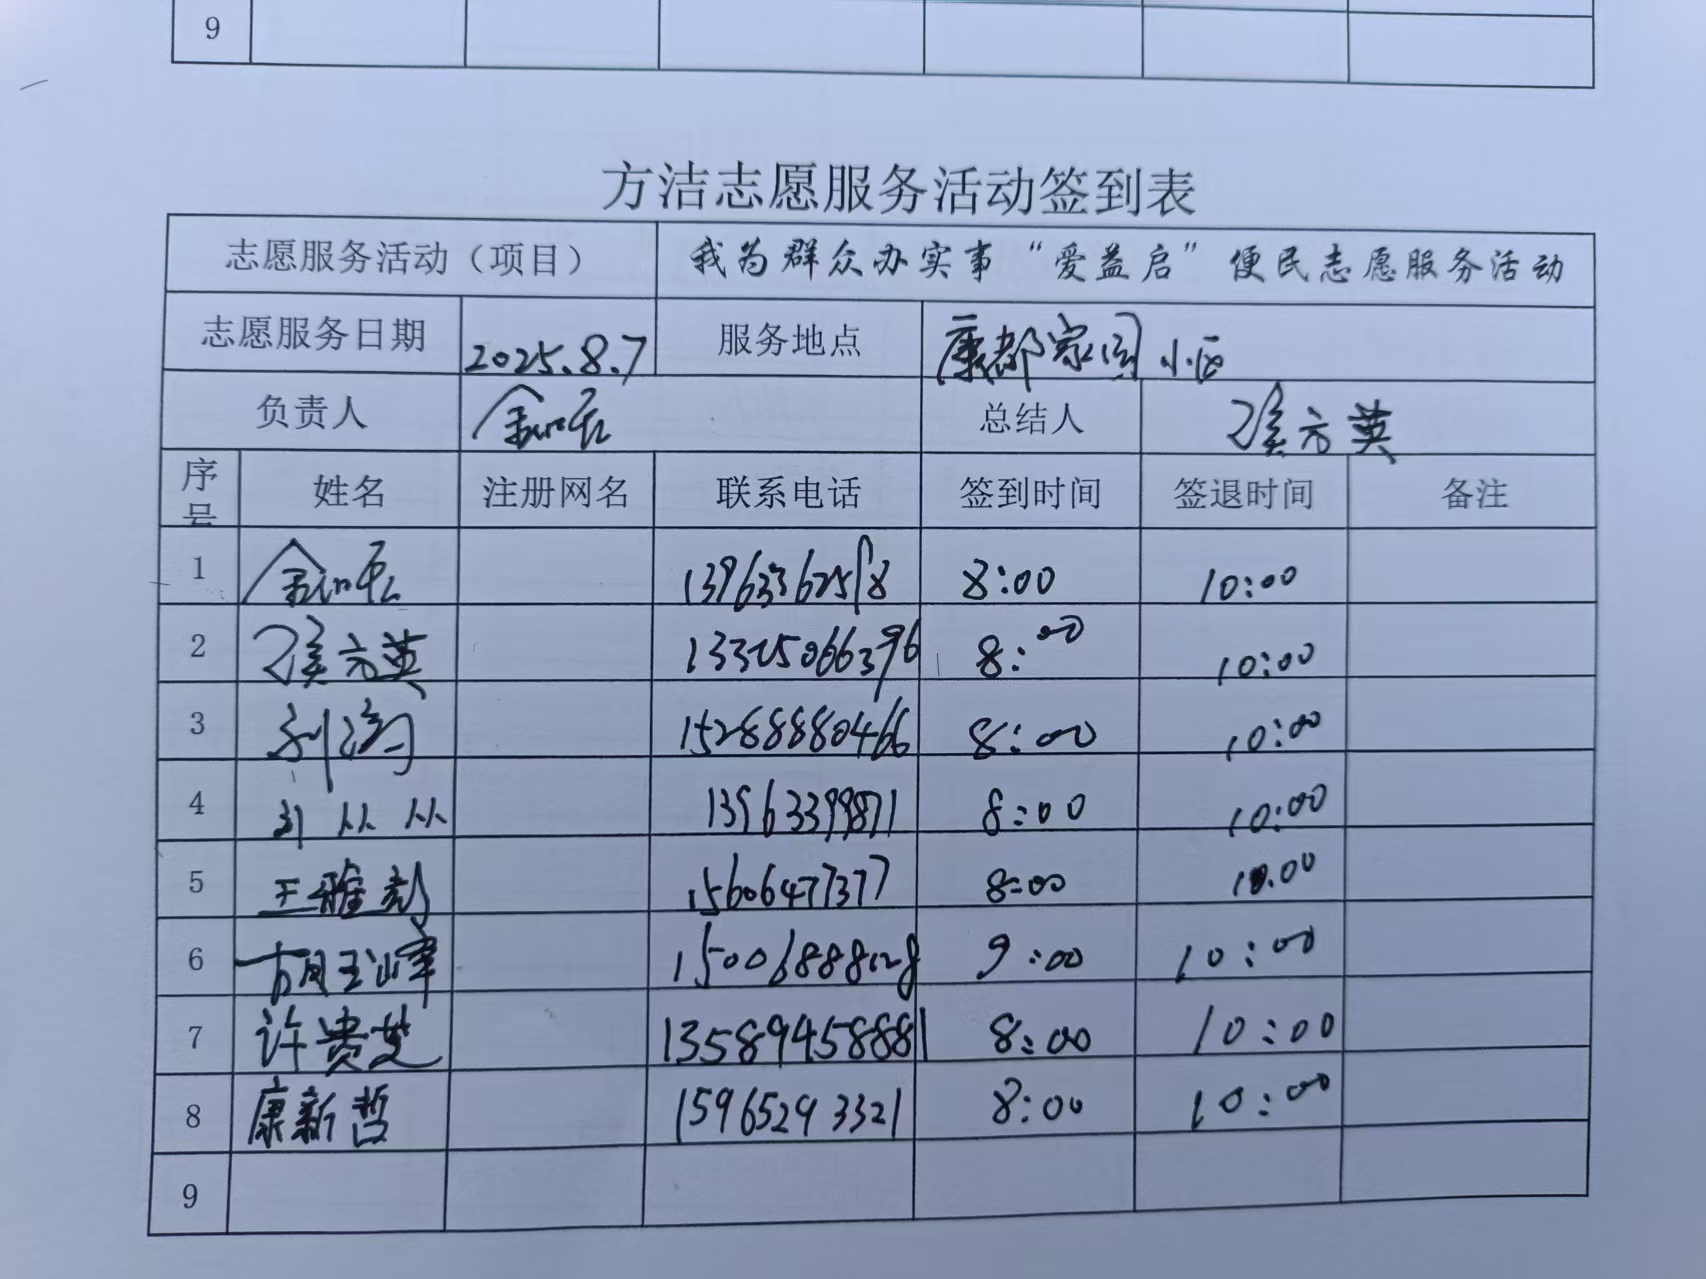 9
方洁志愿服务活动签到表
志愿服务活动（项目） 我为群众办实事“爱益启”便民志愿服务活动
志愿服务日期 2025.8.7 服务地点 康都家园小区
负责人 总结人 侯方英
序号 姓名 注册网名 联系电话 签到时间 签退时间 备注
1 8:00 10:00
2 侯方英 13325066396 8:00 10:00
3 刘涛 15288880466 8:00 10:00
4 刘从从 13963399871 8:00 10:00
5 15606477377 8:00 10.00
6 15006888128 9:00 10:00
7 许贵芝 13589458881 8:00 10:00
8 康新哲 15965293321 8:00 10:00
9